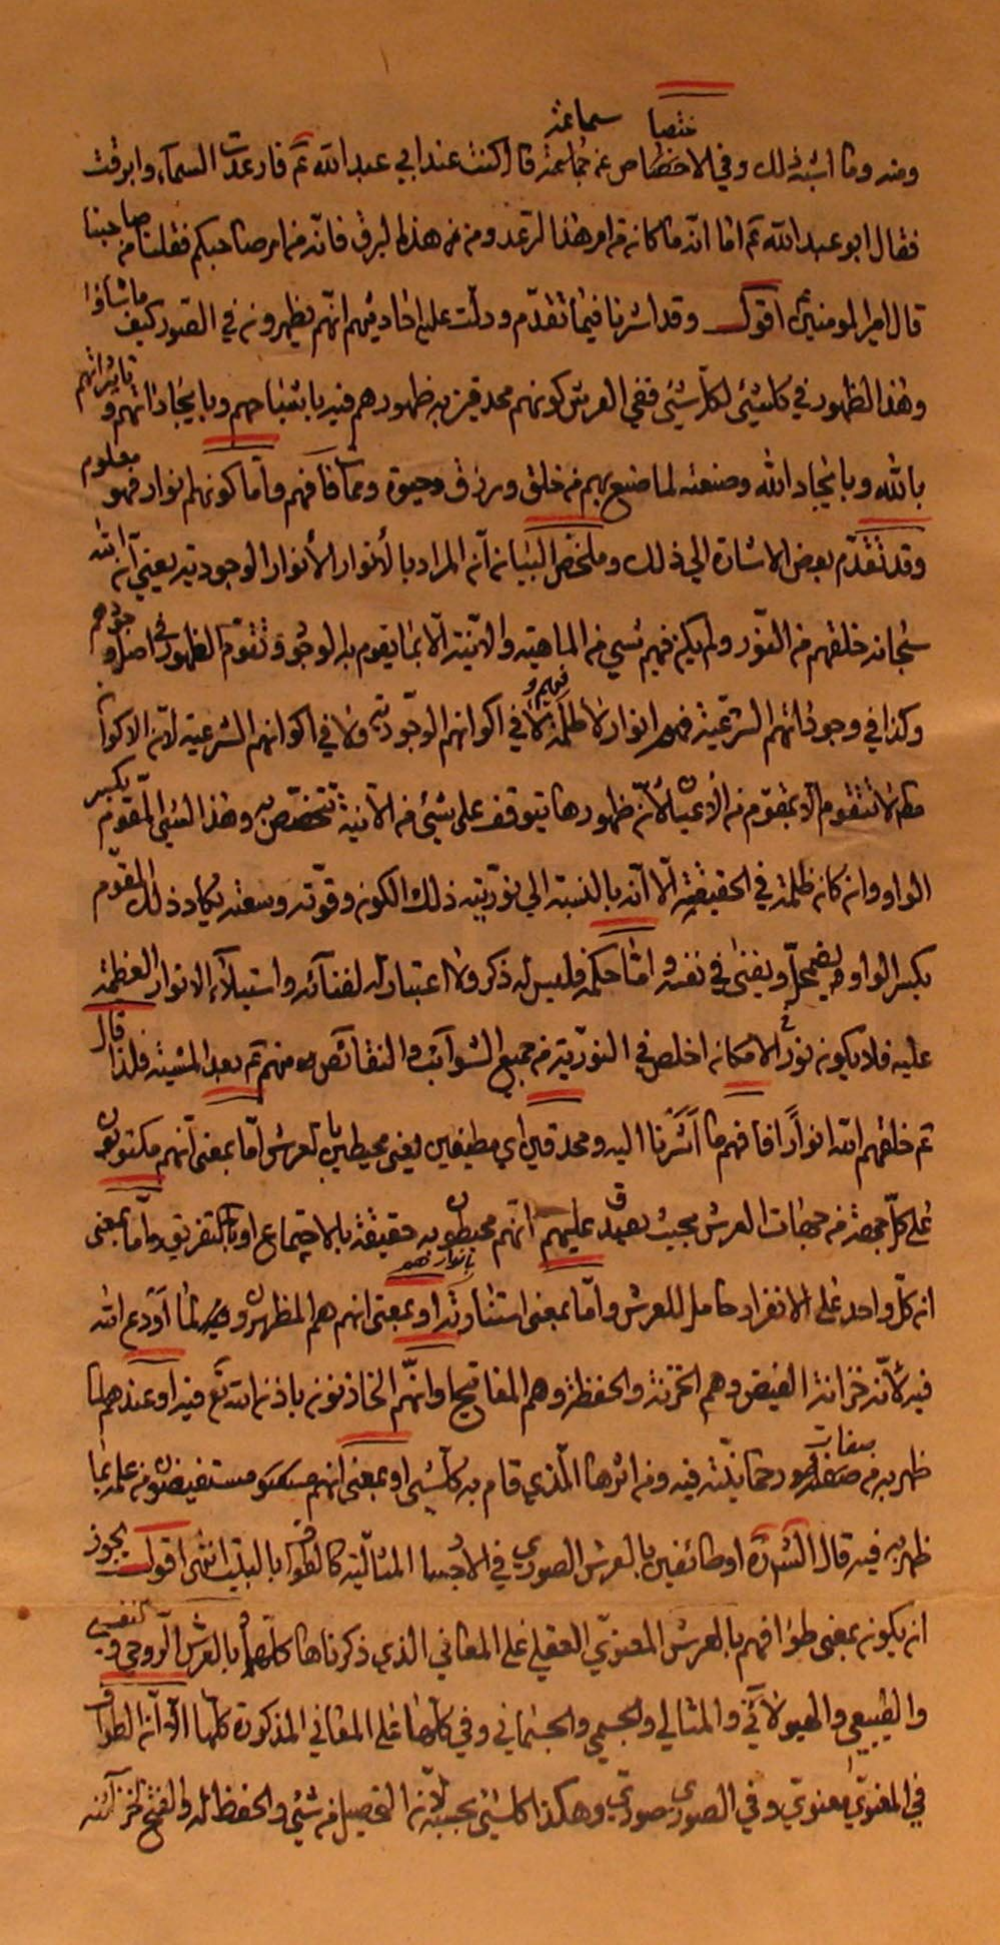 ختصا سماعة
ومنه وما اشبه ذلك وفي الاختصاص عن سماعة قال كنت عند ابي عبد الله ع فارعدت السماء وابرقت
فقال ابو عبد الله ع اما انه ما كان من امر هذا الرعد ومن من هذا البرق فانه من امر صاحبكم فقلنا من صاحبنا
قال امير المؤمنين اقول وقد اشرنا فيما تقدم ودلت عليه احاديثهم انهم يظهرون في الصور كيف ما شاؤا
وهذا الظهور في كل شيء لكل شيء ففي العرش كونهم محدقين به ظهورهم فيه باشباحهم وبايجاداتهم وتاثيراتهم
بالله وبايجاد الله وصنعه لما صنع بهم من خلق ورزق وحيوة وممات فافهم واما كونهم انوار فهو معلوم
وقد تقدم بعض الاشارة الى ذلك وملخص البيان ان المراد بالانوار الأنوار الوجودية يعني ان الله
سبحانه خلقهم من النور ولم يكن فيهم شيء من الماهية والانية الا بما يقوم به الوجود وتقوم الظهور في اصل وجودهم
وكذا في وجوداتهم الشرعية فهم انوار لا ظلمة فيهم ولا في اكوانهم الوجودية ولا في اكوانهم الشرعية لان الاكوان
لا تتقوم الا بمقوم من الاعيان لان ظهورها يتوقف على شيء من الانية تتخصص به وهذا الشيء المقوم بكسر
الواو وان كان ظلمة في الحقيقة الا انه بالنسبة الى نورية ذلك الكون وقوته وسعته يكاد ذلك المقوم
بكسر الواو يضمحل ويفنى في نفسه واما حكمه فليس له ذكر ولا اعتبار له لفنائه واستيلاء الانوار العظيمة
عليه فلا يكون نور في الامكان اخلص في النورية من جميع الشوائب والنقائص منهم ع بعد المشية فلذا قال
ع خلقهم الله انوارا فافهم ما اشرنا اليه ومحدقين اي مطيفين يعني محيطين بالعرش اما بمعنى انهم مكتوبون
على كل جهة من جهات العرش بحيث يصدق عليهم انهم محيطون به حقيقة بالاجتماع او بالتفريق واما بمعنى
ان كل واحد على الانفراد حامل للعرش واما بمعنى استنارته بانوارهم او بمعنى انهم هم المظهرون لما اودع الله
فيه لانه خزانة الفيض وهم الخزنة والحفظة وهم المفاتيح او انهم الخازنون باذن الله تع فيه او عندهم لما
ظهر به من صفات رحمانيته فيه ومن اثرها الذي قام به كل شيء او بمعنى انهم مستفيضون من علمه بما
ظهر به فيه قال الشرح او طائفين بالعرش الصوري في الاجساد المثالية كالطواف بالبيت انتهى اقول يجوز
ان يكون بمعنى طوافهم بالعرش المعنوي العقلي على المعاني الذي ذكرناها كلها او بالعرش الروحي والنفسي
والطبيعي والهيولاني والمثالي والجسمي والجسماني وفي كلها على المعاني المذكورة كلها الا ان الطواف
في المعنوي معنوي وفي الصوري صوري وهكذا كل شيء بحسبه لان التحصيل من شيء والحفظ له والفتح لخزائنه